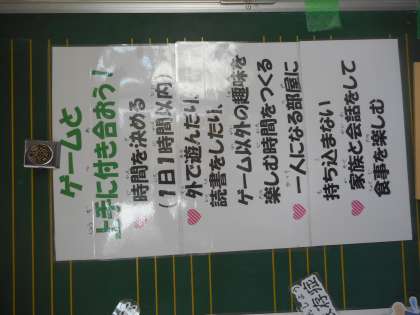 ゲームと
上手に付き合おう！
時間を決める
(1日1時間以内)
外で遊んだり、
読書をしたり、
ゲーム以外の趣味を
楽しむ時間をつくる
一人になる部屋に
持ち込まない
家族と会話をして
食事を楽しむ